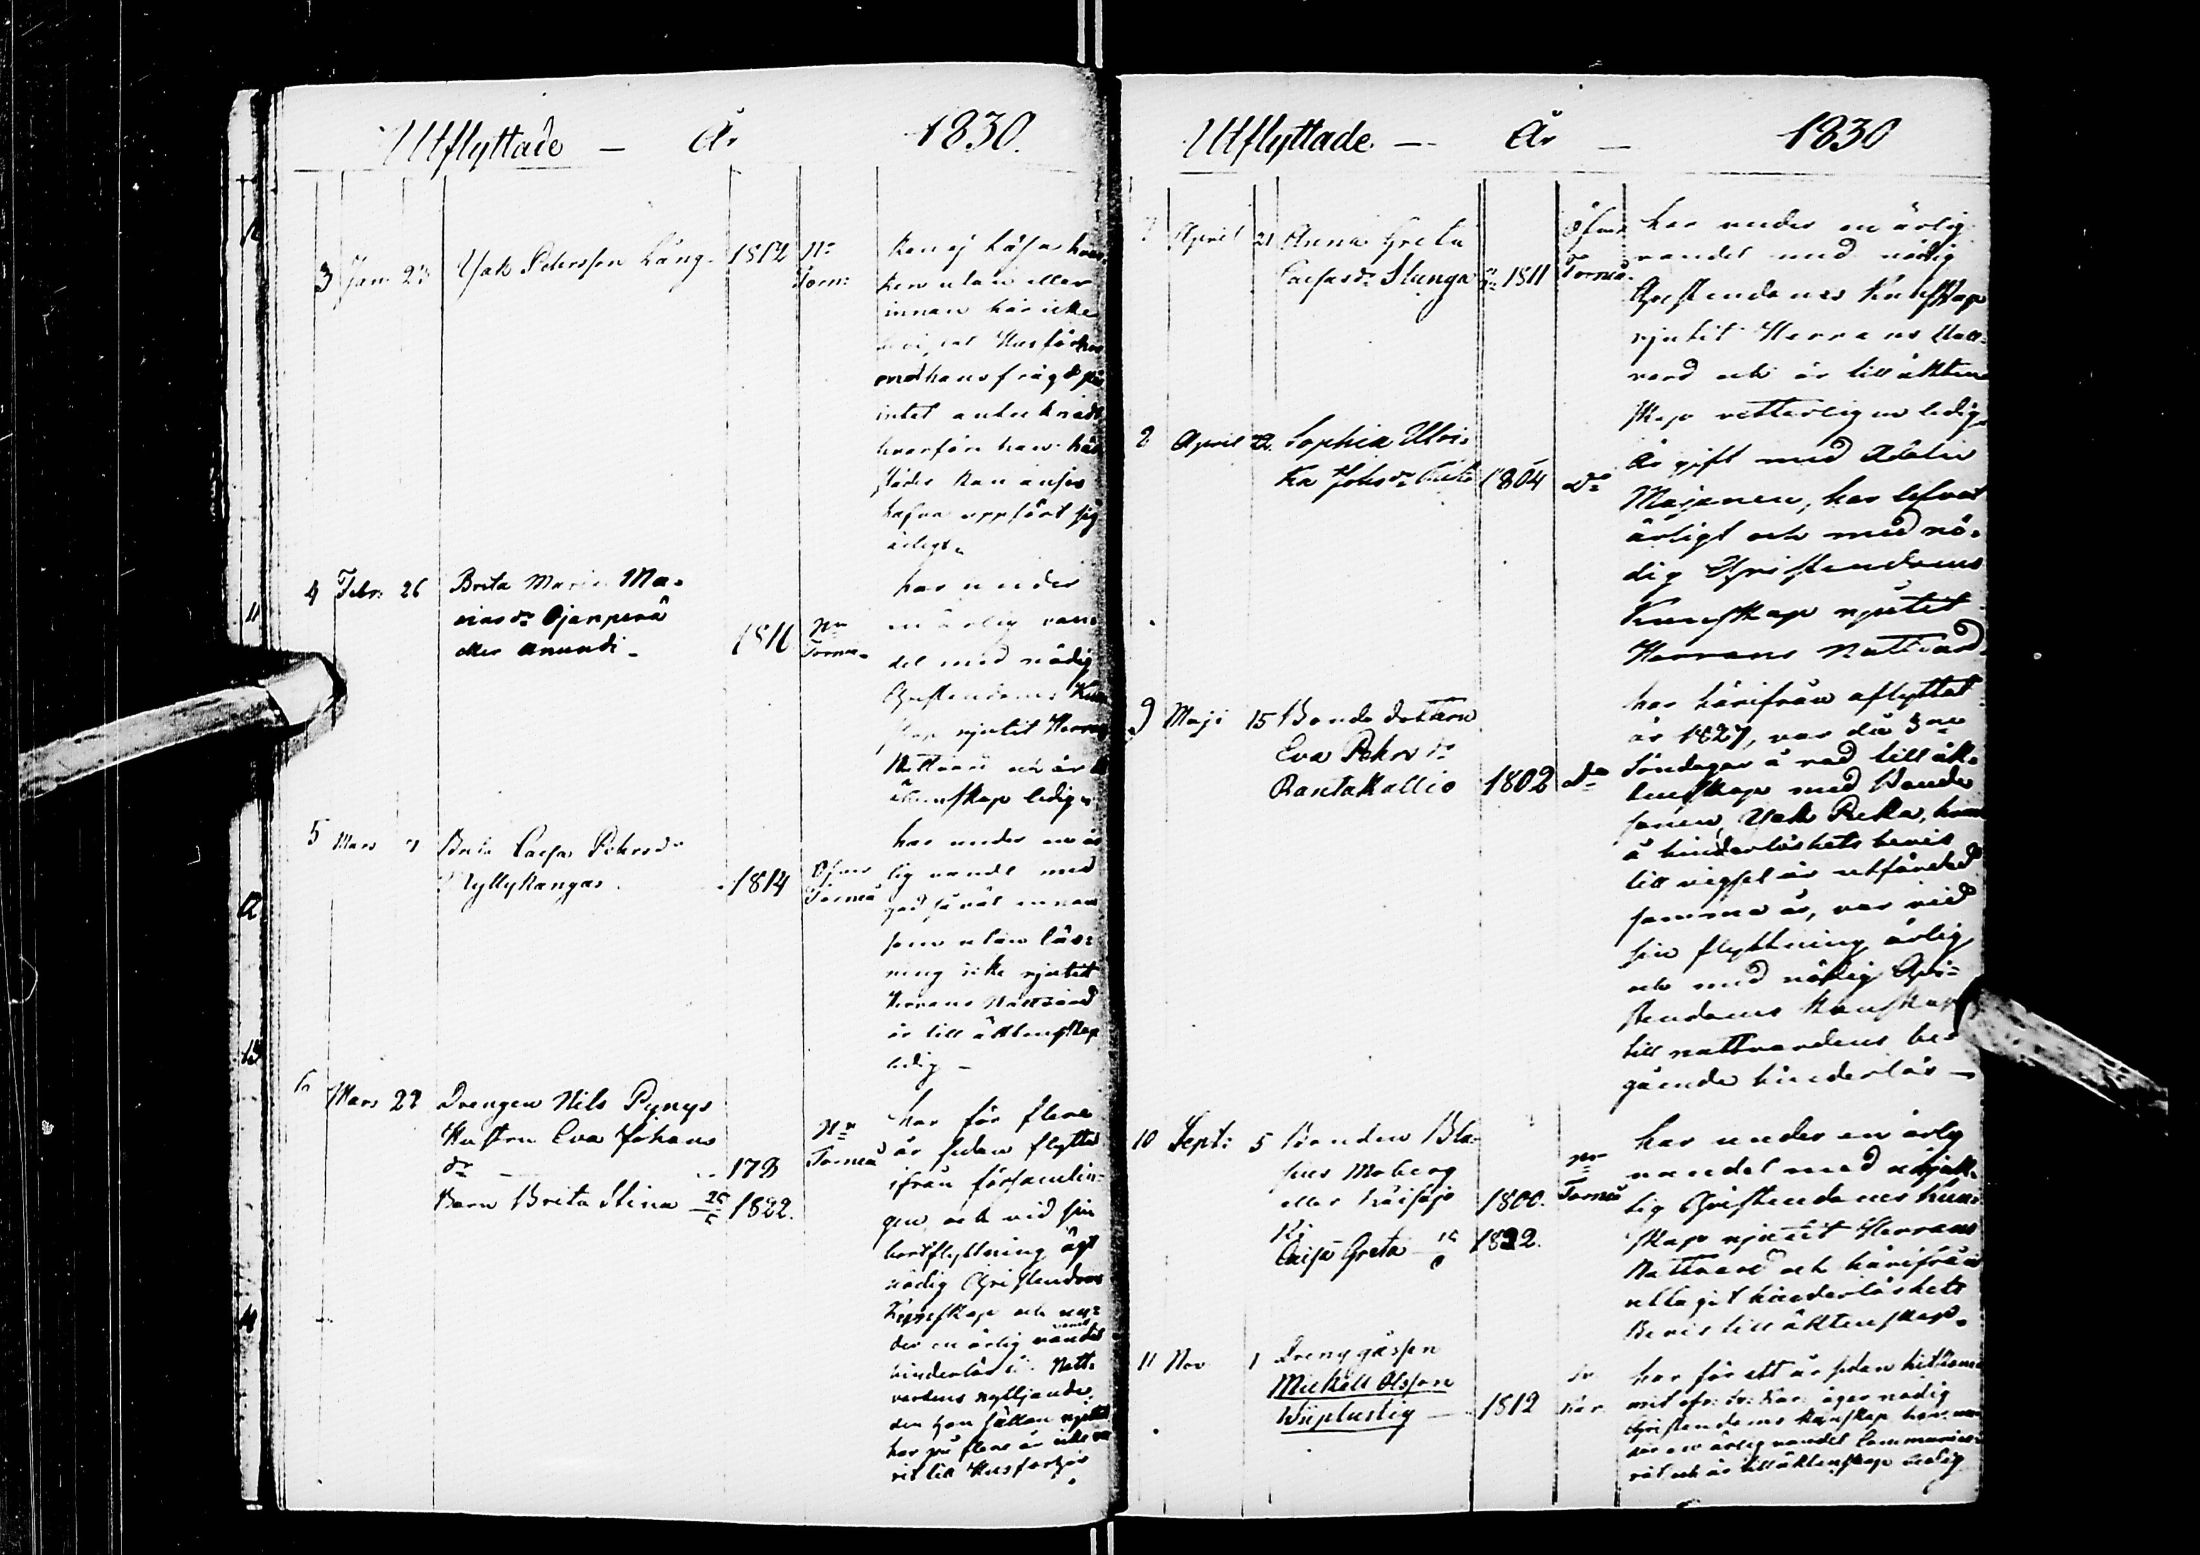 Utflyttade — År 1830.
3 Jan. 23 Isak Pehrsson Lång 1812 Nr
Torn:
kan ej läsa
ken utan eller
innan har icke
Husförhör
intet
hvarföre han
städes kan anses
hafva uppfört sig
ärligt.
4 Febr. 26 Brita Maria Ma-
dr Ojanperä
eller Anundi - 1811 Nr
Torneå
har under
en ärlig van-
del med nödig
Christendoms Kun-
skap njutit Herrans
Nattvard och är
äktenskap ledig.
5 Mars 7 Brita Caisa Pehrsdr
Myllykangas 1814 Öfver
Torneå
har under en är-
lig vandel med
god så väl innan
som utan läs-
ning icke njutit
Herrans Nattvard
är till äktenskap
ledig -
6 Mars 22 Drengen Nils Pynys
Hustru Eva Johans
dr — 178
Barn Brita Stina 1822.
Nr
Torneå
har för flere
år sedan flyttat
ifrån församlin-
gen och vid sin
bortflyttning ägt
nödig Christendoms
Kunskap och un-
der en ärlig vandel
hinderlös till Natt-
vardens nyttjande,
den han sällan njutit
har på flere år icke va-
rit till Husförhör
Utflyttade — År — 1830
7 April 21 Anna Greta
Caisasdr Slunga 1811
Öfver
Torneå.
har under en ärlig
vandel med nödig
Christendomes Kunskap
njutit Herrans Natt-
vard och är till äkten-
skap vetterligen ledig.
8 April 22. Sophia Ulri-
ka Johsdr 1804 do
Är gift med
Majanen, har lefvat
ärligt och med nö-
dig Christendoms
Kunskap njutit
Herrans Nattvard.
9 Maji 15 Bonde dottren
Eva Pehrsdr
Rantakallio 1802 do
har härifrån aflyttat
år 1827, var då 3ne
Söndagar å rad till äk-
tenskap med Bonde
sonen Isak Pekka, hvar-
å hinderlöshets bevis
till vigsel är utfärdad
samma år, var vid
sin flyttning ärlig
och med nödig Chri-
stendoms Kunskap
till nattvardens be-
gående hinderlös —
10 Sept: 5 Bonden Bla-
sius Moberg
eller 1800.
Nr
Torneå
Caisa Greta 1822.
har under en ärlig
vandel med
lig Christendomes Kun-
skap njutit Herrans
Nattvard och härifrån
uttagit hinderlöshets
Bevis till äktenskap.
11 Nov 1 Dreng gåssen
Mickell Olsson
— 1812
Kar
har för ett år sedan hitkom-
mit äger nödig
Christendoms kunskap har un-
der en ärlig vandel Communice-
rat och är till äktenskap ledig